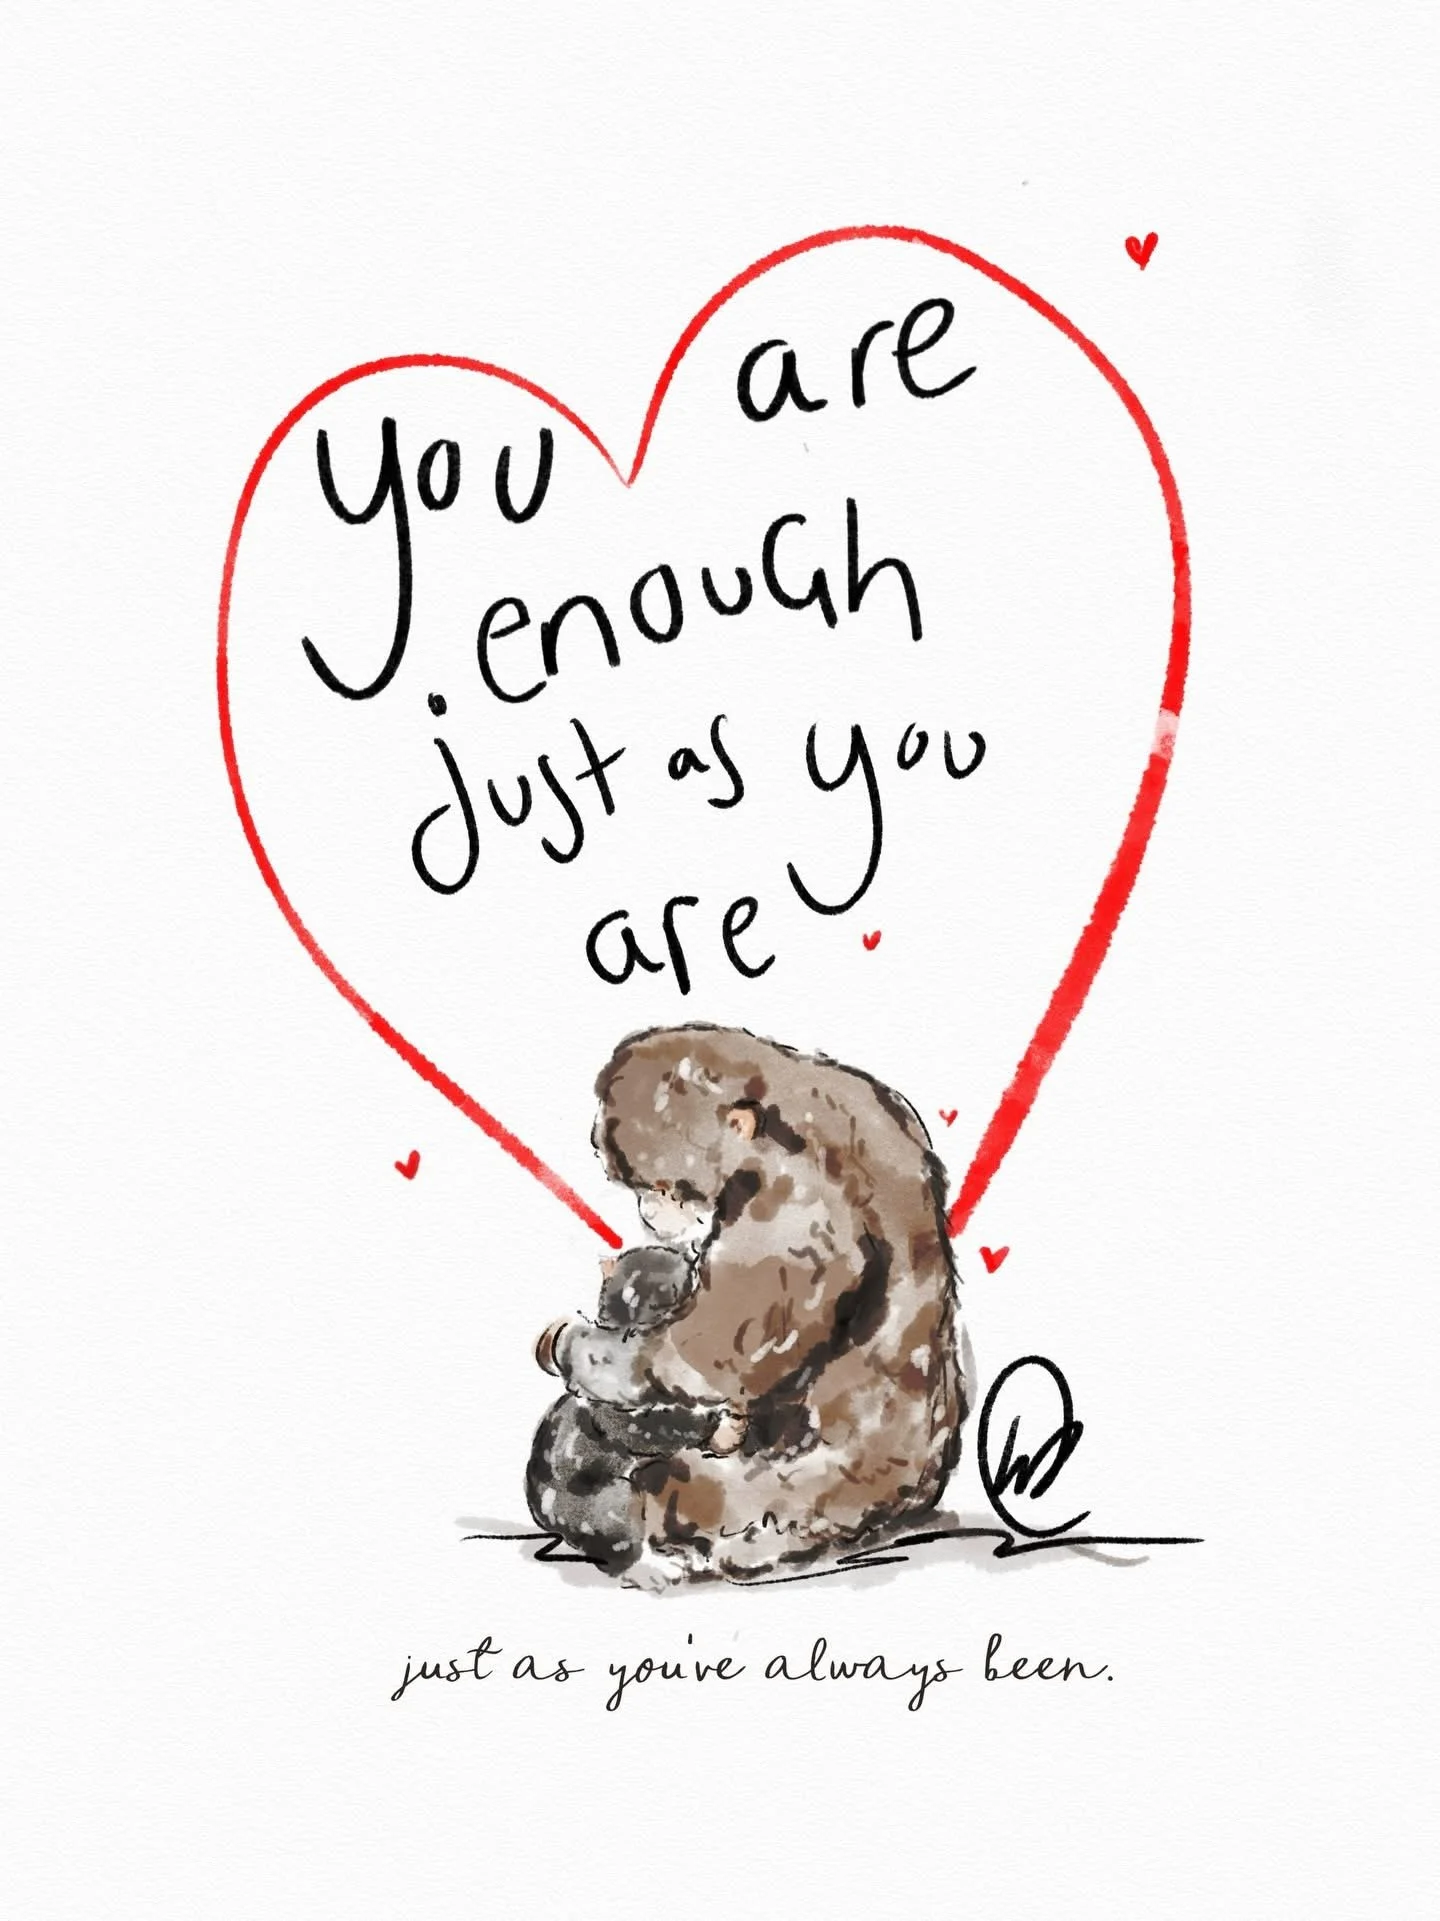 you are
enough
just as you
are
just as you've always been.